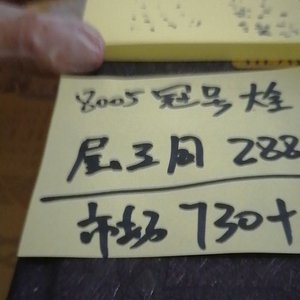 8005冠号大全
尾三同288
市场730+